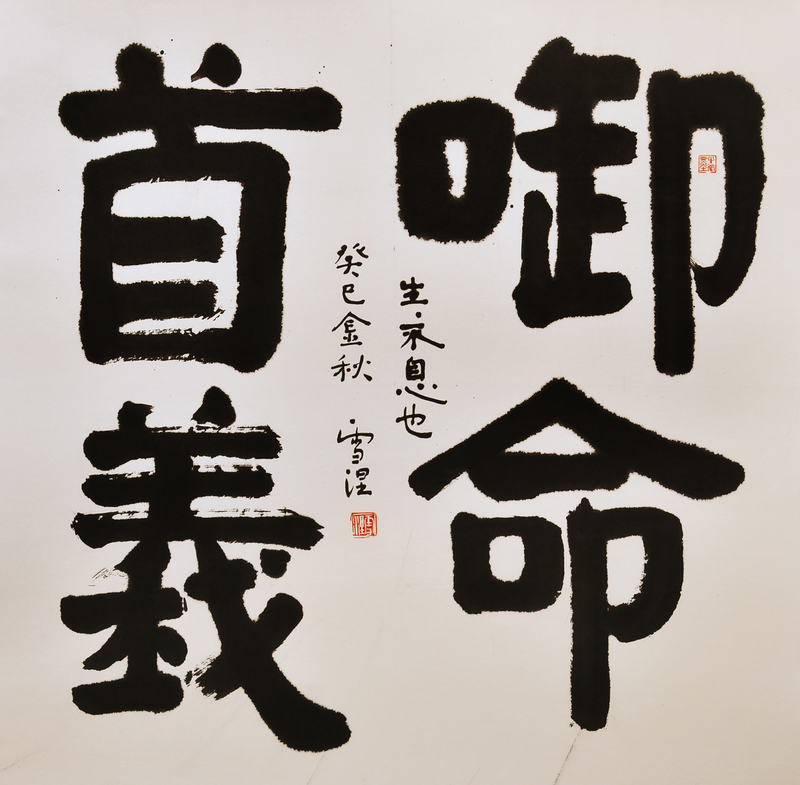 啣命
首義
生々不息也
癸巳金秋 雪涅